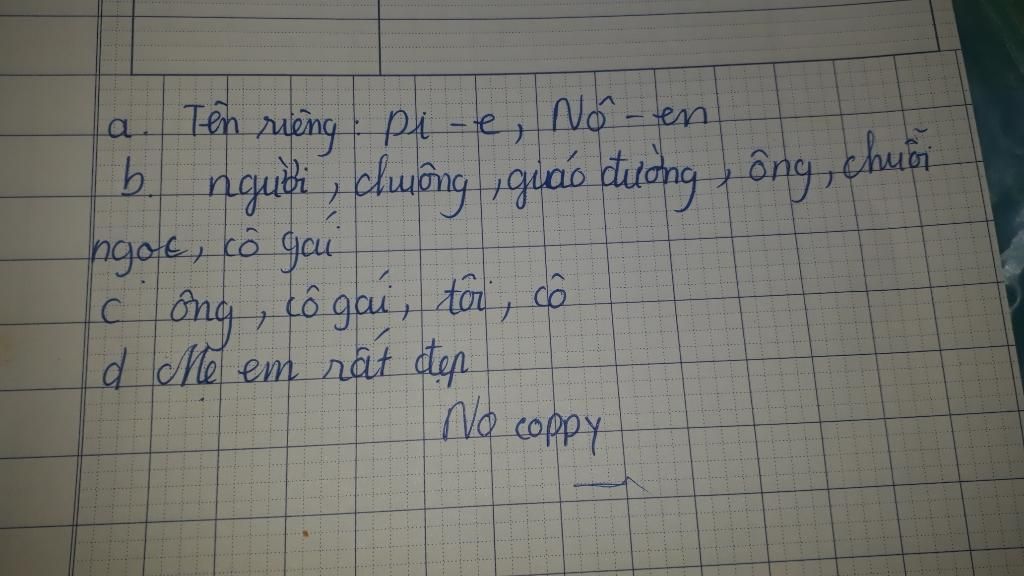 a. Tên riêng: Pi-e, Nô-en
b. người, chuông, giáo đường, ông, chuỗi
ngọc, cô gái
c ông, cô gái, tôi, cô
d Mẹ em rất đẹp
No coppy